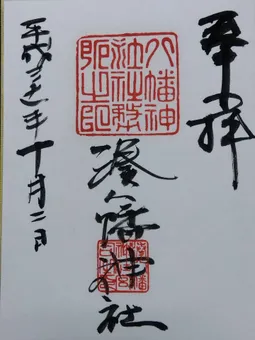 奉拝
八幡神社社務所之印
湊八幡神社
平成年十月二日